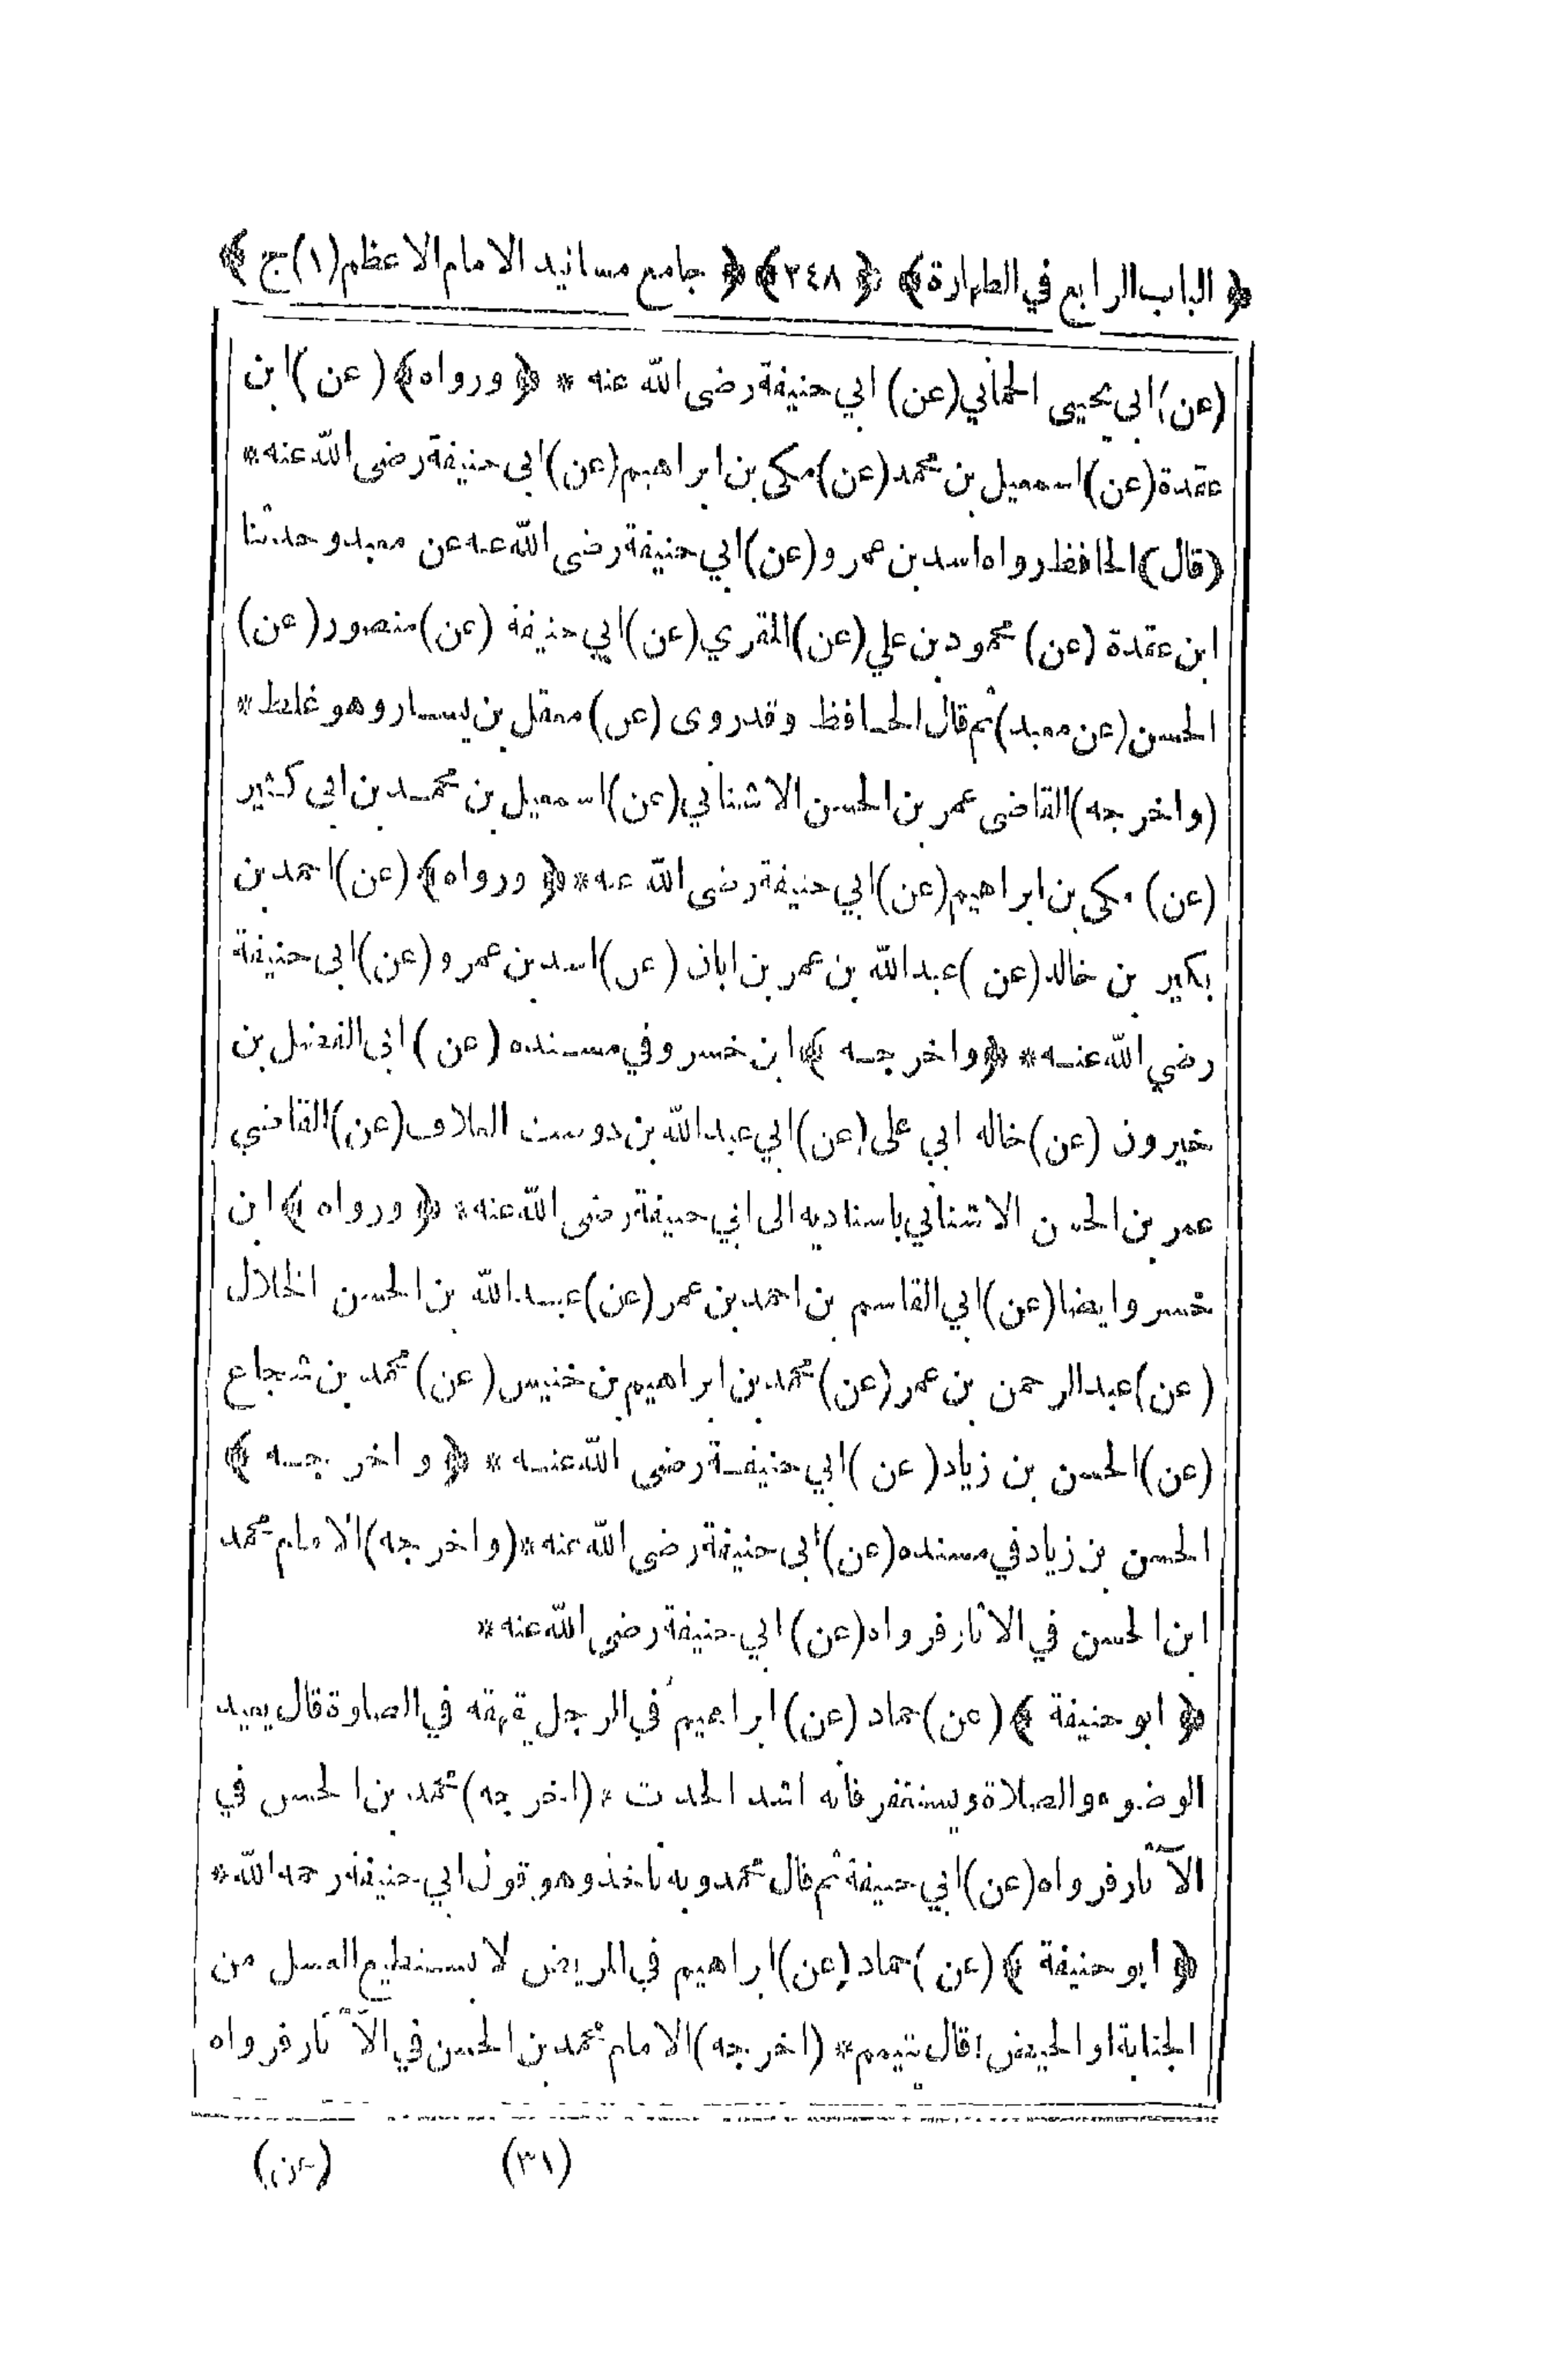 ﴿ الباب الرابع في الطهارة ﴾ ﴿ ٣٤٨ ﴾ ﴿ جامع مسانيد الامام الاعظم (١) ج ﴾
(عن) ابى يحيى الحماني (عن) ابي حنيفة رضى الله عنه * ﴿ ورواه ﴾ (عن) ابن
عقدة (عن) اسمعيل بن محمد (عن) مكى بن ابراهيم (عن) ابى حنيفة رضى الله عنه *
(قال) الحافظ رواه اسد بن عمرو (عن) ابي حنيفة رضى الله عنه عن معبد وحدثنا
ابن عقدة (عن) محمود بن علي (عن) المقري (عن) ابي حنيفة (عن) منصور (عن)
الحسن (عن معبد) ثم قال الحافظ وقد روى (عن) معقل بن يسار وهو غلط *
(واخرجه) القاضى عمر بن الحسن الاشناني (عن) اسمعيل بن محمد بن ابى كثير
(عن) مكى بن ابراهيم (عن) ابي حنيفة رضى الله عنه * ﴿ ورواه ﴾ (عن) احمد بن
بكير بن خالد (عن) عبدالله بن عمر بن ابان (عن) اسد بن عمرو (عن) ابى حنيفة
رضي الله عنه * ﴿ واخرجه ﴾ ابن خسرو في مسنده (عن) ابى الفضل بن
خيرون (عن) خاله ابي على (عن) ابي عبدالله بن دوست العلاف (عن) القاضي
عمر بن الحسن الاشناني باسناديه الى ابي حنيفة رضى الله عنه * ﴿ ورواه ﴾ ابن
خسرو ايضا (عن) ابي القاسم بن احمد بن عمر (عن) عبدالله بن الحسن الخلال
(عن) عبدالرحمن بن عمر (عن) محمد بن ابراهيم بن خنيس (عن) محمد بن شجاع
(عن) الحسن بن زياد (عن) ابي حنيفة رضى الله عنه * ﴿ واخرجه ﴾
الحسن بن زياد في مسنده (عن) ابى حنيفة رضى الله عنه * (واخرجه) الامام محمد
ابن الحسن في الاثار فرواه (عن) ابي حنيفة رضى الله عنه *
﴿ ابو حنيفة ﴾ (عن) حماد (عن) ابراهيم في الرجل يقهقه في الصلوة قال يعيد
الوضوء والصلاة ويستغفر فانه اشد الحدث * (اخرجه) محمد بن الحسن في
الآثار فرواه (عن) ابي حنيفة ثم قال محمد وبه ناخذ وهو قول ابي حنيفة رحمه الله *
﴿ ابو حنيفة ﴾ (عن) حماد (عن) ابراهيم في المريض لا يستطيع الغسل من
الجنابة او الحيض قال يتيمم * (اخرجه) الامام محمد بن الحسن في الآثار فرواه
(٣١) (عن)